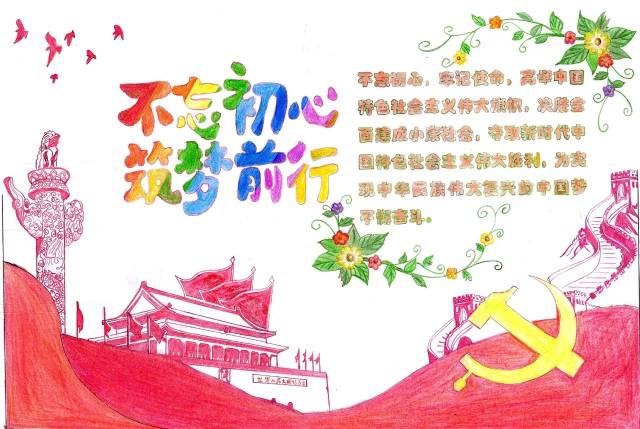 不忘初心
筑梦前行
不忘初心，牢记使命，高举中国
特色社会主义伟大旗帜，决胜全
面建成小康社会，夺取新时代中
国特色社会主义伟大胜利，为实
现中华民族伟大复兴的中国梦
不懈奋斗。